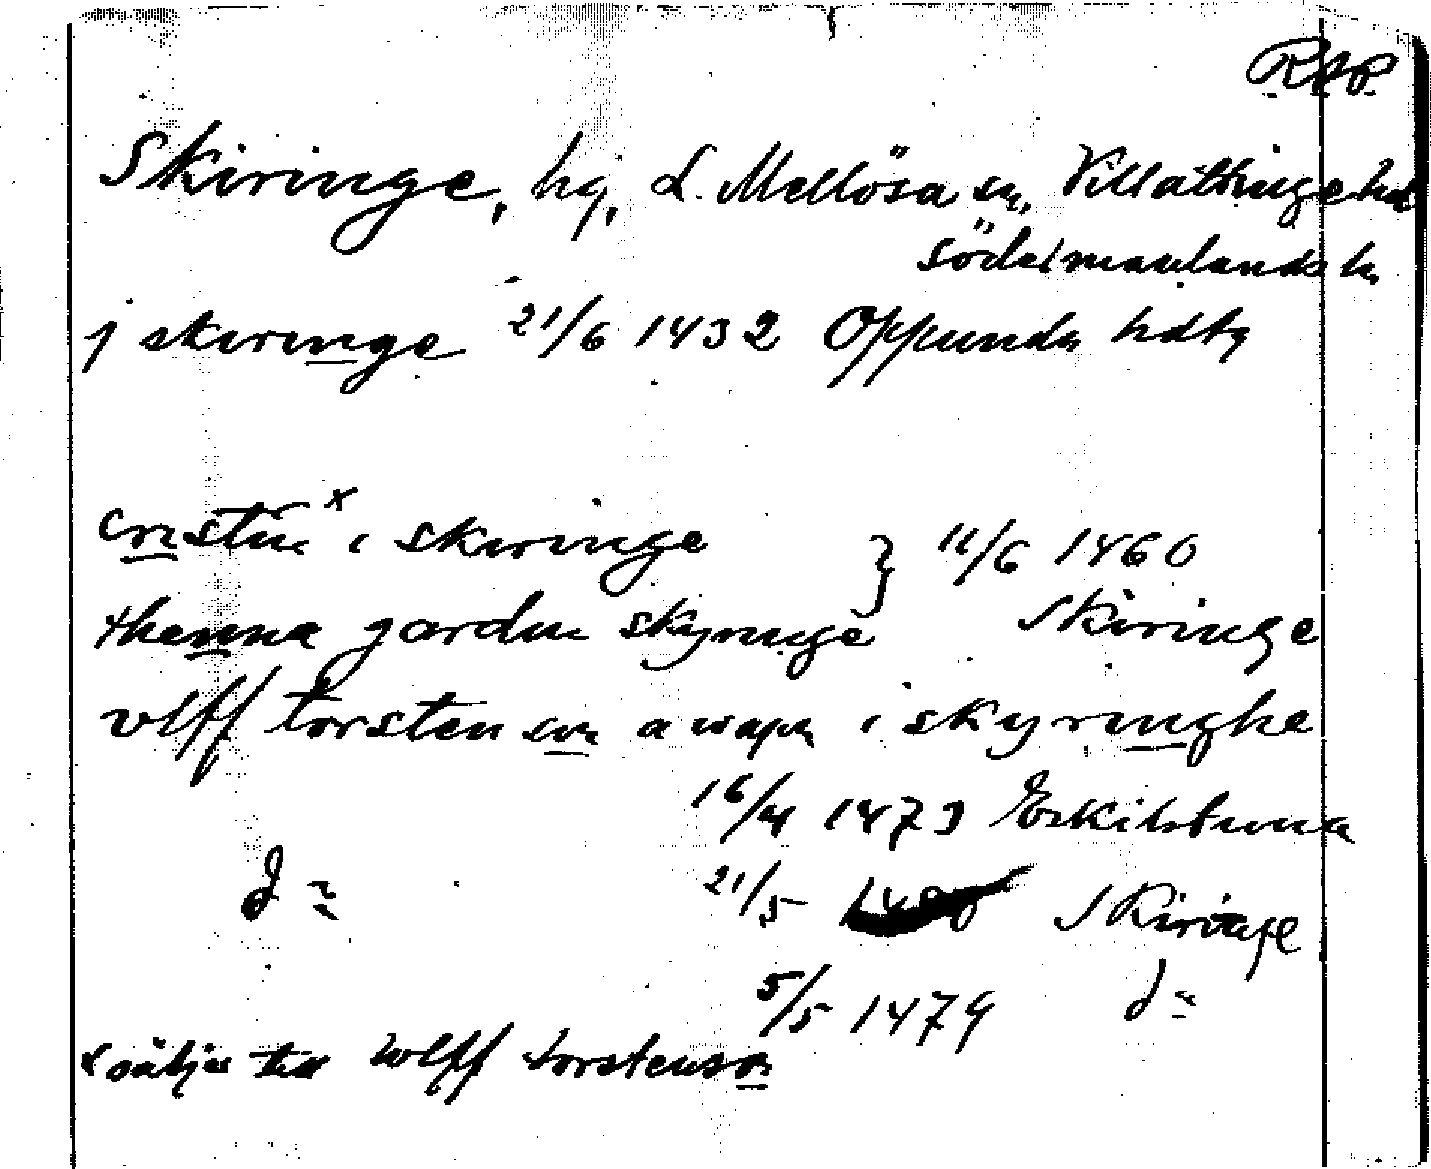 RAP
Skiringe, hg, L. Mellösa sn, Villåttinge hd
Södermanlands l.
j skiringe 21/6 1432 Oppunda hdtg
cristin x i skiringe } 11/6 1460
thenna gardin skyringe Skiringe
vlff torsten son a wapn i skyringhe
16/4 1473 Eskilstuna
d= 21/5 Skiringe
5/5 1479 d=
x säljer till wlff torstenson